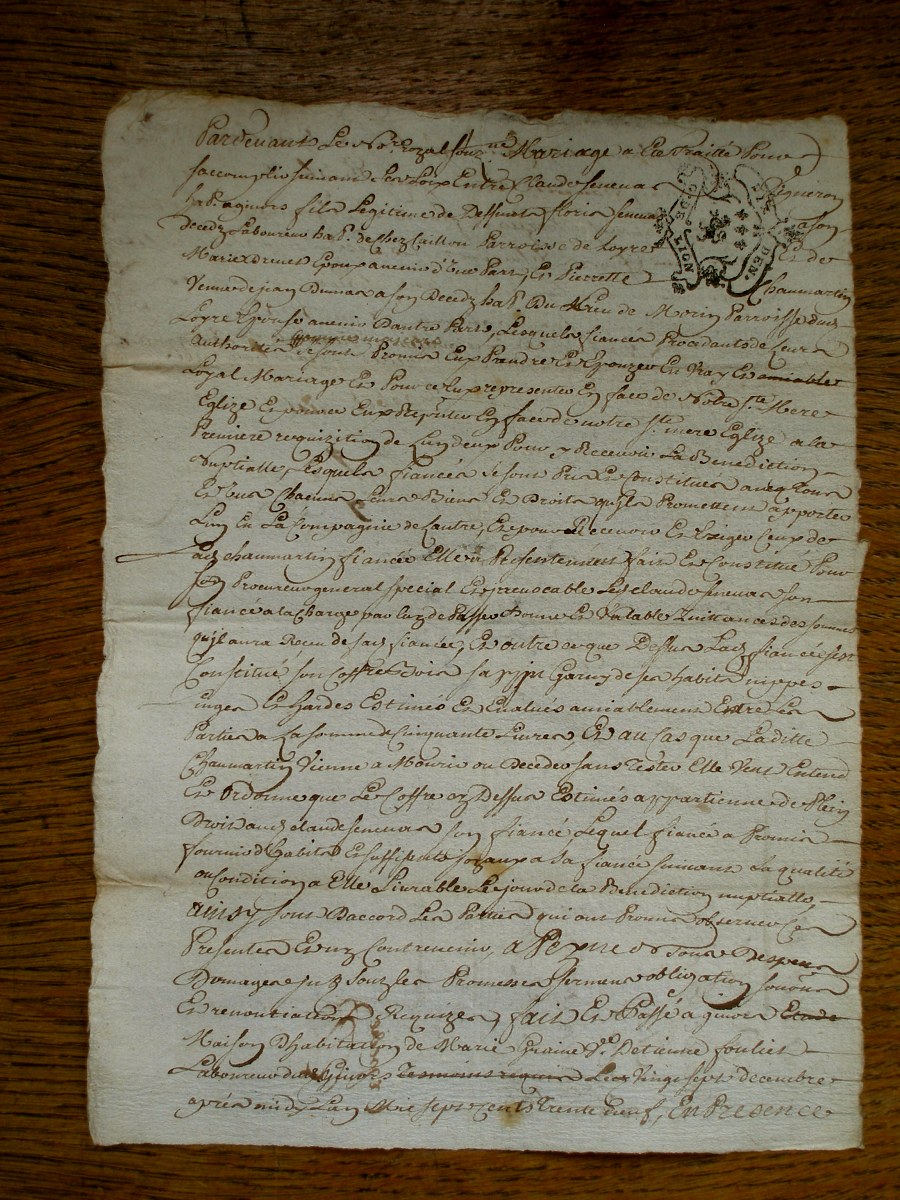 Pardevant Le No.re Royal sous.né Mariage a Eté Traitté Pour
saccomplir suivant les Loix Entre Claude seneuas Vigneron
ha.t a givors fils Legitime de Deffunts floris seneuas a son
decedz Laboureur ha.t de chez Caillon Parroisse de Loyre Et de
Marie drevet Epoux avenir d'Une Part, Et Pierrette Chaumartin
Veuve de jean Dumas a son Decedz ha.t Du Lieu de Morin Parroisse dud.
Loyre Epouse avenir Dautre Part, Lesquels fiancés Procedants de Leurs
authorités se sont Promis Eux Prendre Et Epouzer En Vray Et amiable
Loyal Mariage Et Pour ce Eux representer En face de Notre s.te Mere
Eglize Et pource Eux Repnter En face de notre s.te mere Eglize a la
Premiere requizition de Lun deux Pour y Recevoir La Benediction
Nuptialle, Lesquels fiancés se sont Pris Et Constitués avec tous
Et Uns Chacuns Leurs Biens Et Droits quils Promettent apporter
Lun En La Compagnie de Lautre, Et pour Recevoir Et Exiger Ceux de
Lad. chaumartin fiancée Elle a Presentement fait Et Constitué Pour
son Procureur general special Et irrevocable Led. claude seneuas son
fiancé a la Charge par luy de Passer bonne Et Valable Quittances des sommes
quil aura Receu de sad. fiancée, Et outre ce que Dessus Lad. fiancée sest
Constitué son Coffre Bois sapin Garny de ses habits nippes
linges Et hardes Estimés Et Evalués amiablement Entre Les
Parties a La somme de Cinquante Livres, Et au Cas que Laditte
Chaumartin Vienne a Mourir ou Deceder sans Tester Elle Veut Entend
Et Ordonne que Le Coffre cy Dessus Estimé appartienne de Plein
Droit aud. claude seneuas son fiancé Lequel fiancé a Promis
fournir d'habits Et suffisants joyaux a sa fiancée suivant sa qualité
ou Condition a Elle Livrables Le jour de la Benediction nuptialle,
ainsy sont Daccord Les Parties qui ont Promis observer Ces
Presentes Et ny Contrevenir, a Peyne de Tous Despens
Domages sous Les Promesses serments obligation
Et renontiations Requizes, fait Et Passé a givors Etude
Maison d'habitation de Marie Graine V.e Detienne foulliet
Laboureur dud. Givors Temoins requis Le Vingt sept decembre
aprés midy Lan Mil sept Cents Trente neuf, En Presence
LION
GEN.